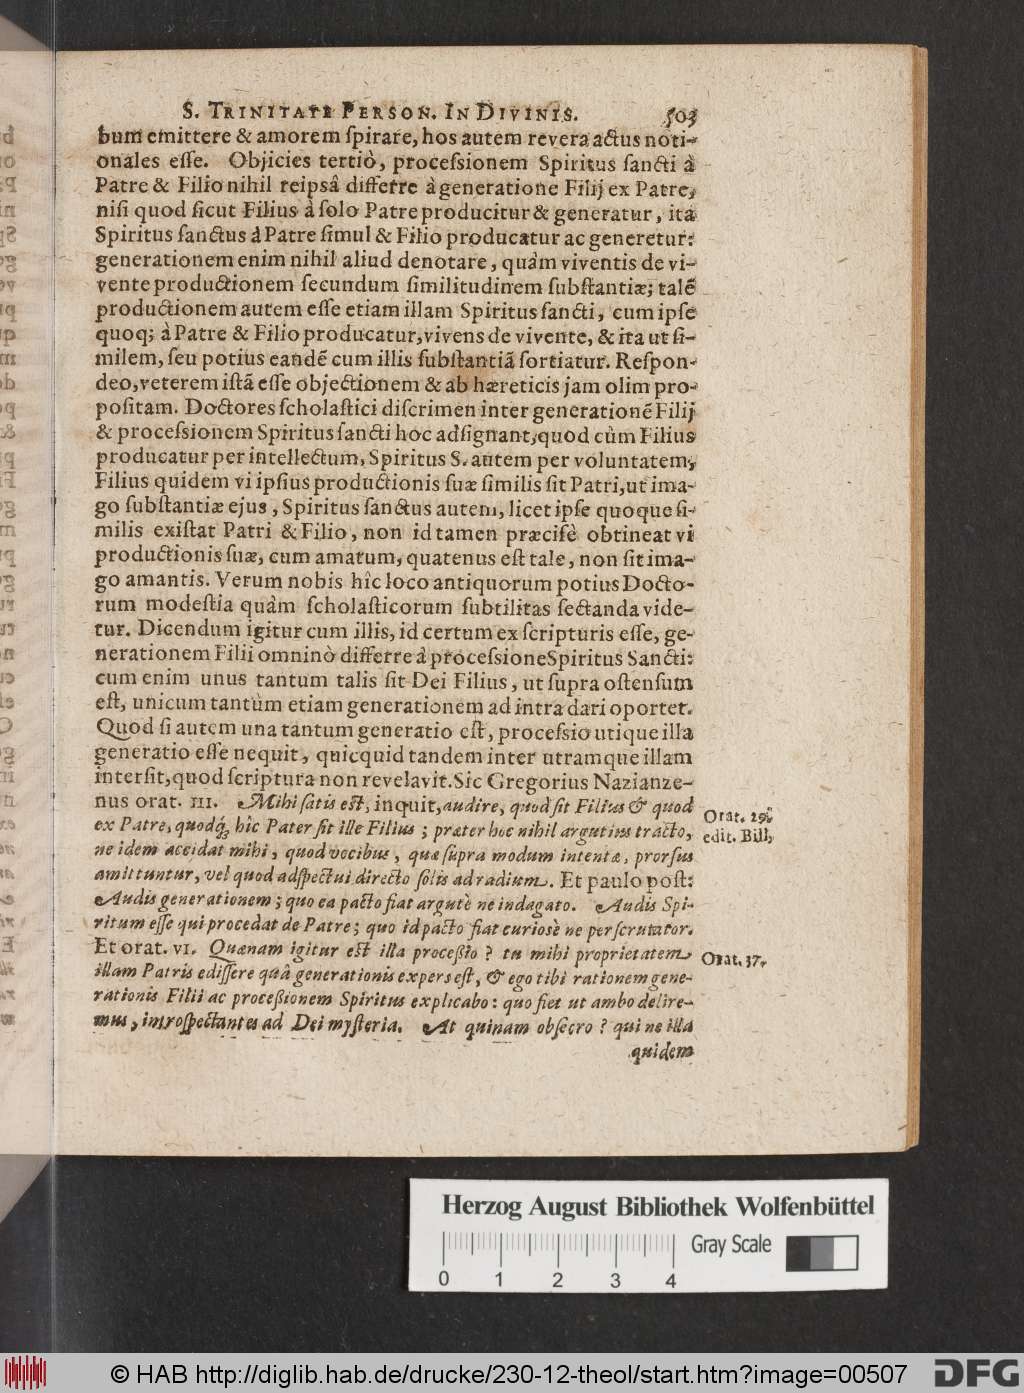 S. TRINITATE PERSON. IN DIVINIS. 503
bum emittere & amorem ſpirare, hos autem revera actus noti-
onales eſſe. Objicies tertiò, proceſsionem Spiritus ſancti à
Patre & Filio nihil reipsâ differre à generatione Filij ex Patre,
niſi quod ſicut Filius à ſolo Patre producitur & generatur, ita
Spiritus ſanctus à Patre ſimul & Filio producatur ac generetur:
generationem enim nihil aliud denotare, quàm viventis de vi-
vente productionem ſecundum ſimilitudinem ſubſtantiæ; talẽ
productionem autem eſſe etiam illam Spiritus ſancti, cum ipſe
quoq; à Patre & Filio producatur, vivens de vivente, & ita ut ſi-
milem, ſeu potius eandẽ cum illis ſubſtantiã ſortiatur. Reſpon-
deo, veterem iſtã eſſe objectionem & ab hæreticis jam olim pro-
poſitam. Doctores ſcholaſtici diſcrimen inter generationẽ Filij
& proceſsionem Spiritus ſancti hoc adſignant, quod cùm Filius
producatur per intellectum, Spiritus S. autem per voluntatem,
Filius quidem vi ipſius productionis ſuæ ſimilis ſit Patri, ut ima-
go ſubſtantiæ ejus, Spiritus ſanctus autem, licet ipſe quoque ſi-
milis exiſtat Patri & Filio, non id tamen præciſè obtineat vi
productionis ſuæ, cum amatum, quatenus eſt tale, non ſit ima-
go amantis. Verum nobis hîc loco antiquorum potius Docto-
rum modeſtia quàm ſcholaſticorum ſubtilitas ſectanda vide-
tur. Dicendum igitur cum illis, id certum ex ſcripturis eſſe, ge-
nerationem Filii omninò differre à proceſsione Spiritus Sancti:
cum enim unus tantum talis ſit Dei Filius, ut ſupra oſtenſum
eſt, unicum tantùm etiam generationem ad intra dari oportet.
Quod ſi autem una tantum generatio eſt, proceſsio utique illa
generatio eſſe nequit, quicquid tandem inter utramque illam
interſit, quod ſcriptura non revelavit. Sic Gregorius Nazianze-
nus orat. III. Mihi ſatis eſt, inquit, audire, quod ſit Filius & quod
ex Patre, quodq́; hîc Pater ſit ille Filius; præter hoc nihil argutius tracto,
ne idem accidat mihi, quod vocibus, quæ ſupra modum intentæ, prorſus
amittuntur, vel quod adſpectui directo ſolis ad radium. Et paulo poſt:
Audis generationem; quo ea pacto fiat argutè ne indagato. Audis Spi-
ritum eſſe qui procedat de Patre; quo id pacto fiat curiosè ne perſcrutator.
Et orat. VI. Quænam igitur eſt illa proceßio? tu mihi proprietatem
illam Patris ediſſere quâ generationis expers eſt, & ego tibi rationem gene-
rationis Filii ac proceßionem Spiritus explicabo: quo fiet ut ambo delire-
mus, introſpectantes ad Dei myſteria. At quinam obſecro? qui ne illa
quidem
Orat. 29.
edit. Bill.
Orat. 37.
Herzog August Bibliothek Wolfenbüttel
Gray Scale
0 1 2 3 4
© HAB http://diglib.hab.de/drucke/230-12-theol/start.htm?image=00507
DFG